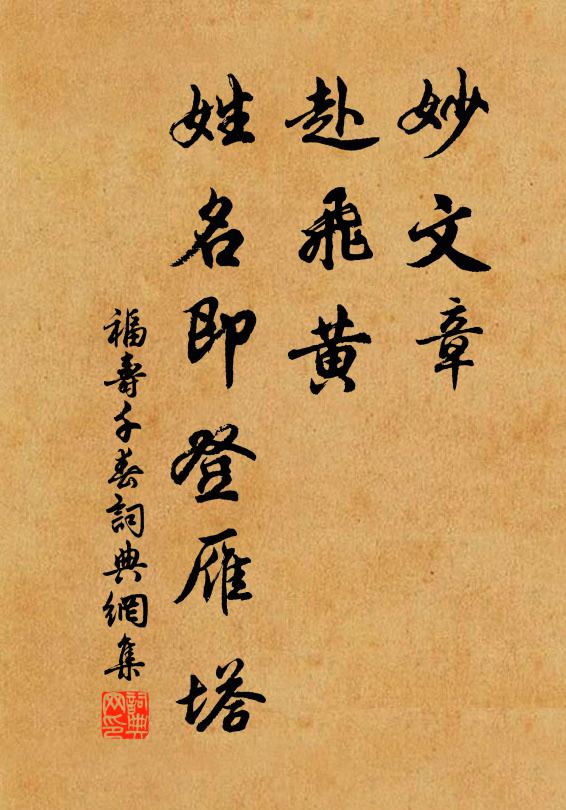 妙文章
赴飛黄
姓名即登雁塔
福壽千春詞典網集
詞典
网印